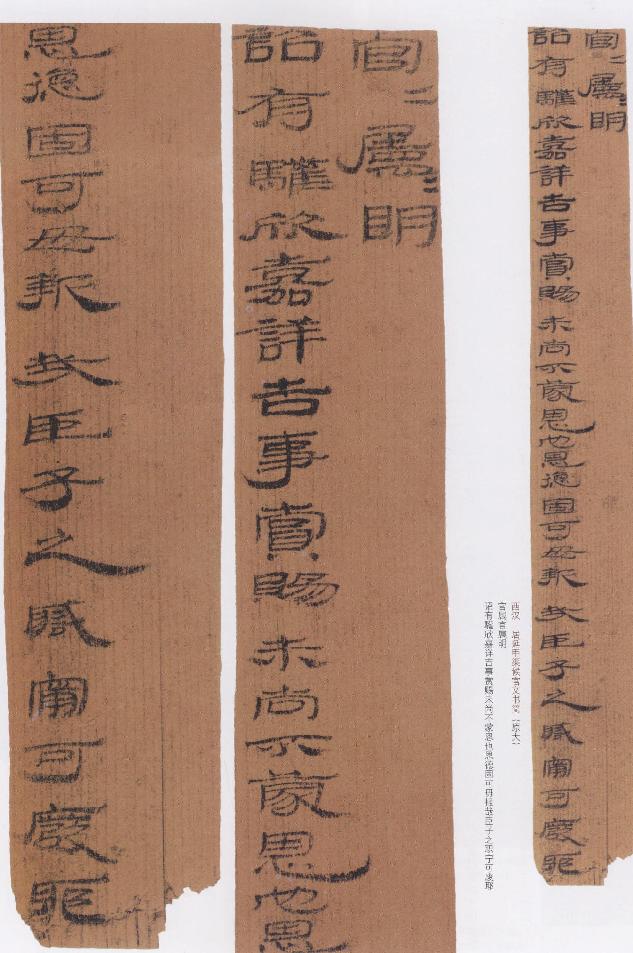 官〓屬〓明
詔有驩欣嘉詳吉事賞賜未尚不蒙恩也恩德固可毋報哉臣子之職甯可廢耶
西汉 居延甲渠候官文书简（原大）
官属官属明
诏有驩欣嘉详吉事赏赐未尚不蒙恩也恩德固可毋报哉臣子之职宁可废耶
官〓屬〓明
詔有驩欣嘉詳吉事賞賜未尚不蒙恩也恩
恩德固可毋報哉臣子之職甯可廢耶